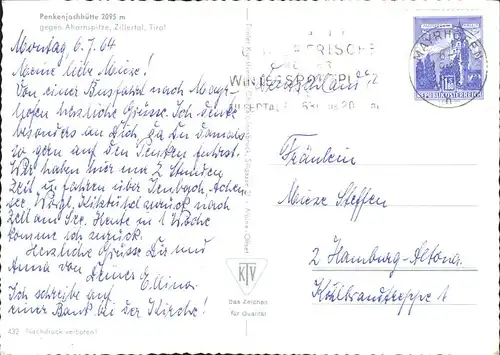 Penkenjochhütte 2095 m
gegen Ahornspitze, Zillertal, Tirol
Montag 6.7.64
Meine liebe Meise!
Von einer Busfahrt nach Mayr-
hofen herzliche Grüsse. Ich denke
besonders an Dich, da Du damals
so gern auf den Penken fuhrst.
Wir haben hier nur 2 Stunden
Zeit u. fahren über Jenbach, Achen-
see, Wörgl, Kitzbühel zurück nach
Zell am See. Heute in 1 Woche
komme ich zurück.
Herzliche Grüsse Dir und
Anna von Deiner Ellinor
Ich schreibe auf
einer Bank bei der Kirche!
432 Nachdruck verboten!
KTV
Das Zeichen
für Qualität
MAYRHOFEN
REPUBLIK ÖSTERREICH
WINTERSPORTPL
Deutschland
Fräulein
Meize Steffen
2 Hamburg-Altona
Köhlbrandtreppe 1